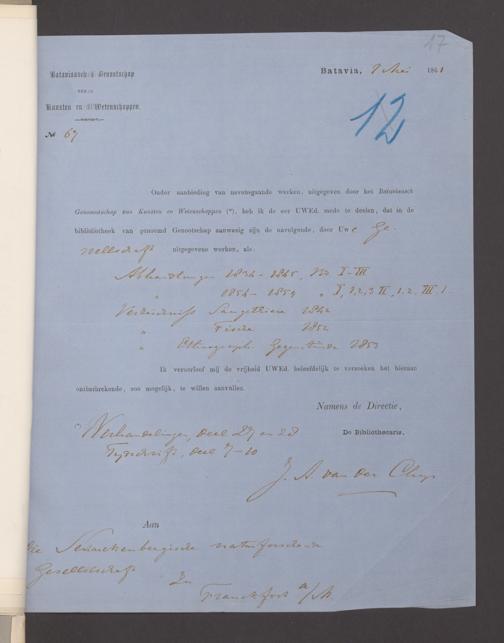 17
Bataviaasch Genootschap
van
Kunsten en Wetenschappen.
№ 67
Batavia, 9 Mei 1861
12
Onder aanbieding van nevensgaande werken, uitgegeven door het Bataviaasch
Genootschap van Kunsten en Wetenschappen (*), heb ik de eer UWEd. mede te deelen, dat in de
bibliotheek van genoemd Genootschap aanwezig zijn de navolgende, door Uwe Ge-
sellschaft uitgegevene werken, als:
Abhandlungen 1834-1845, Bd. I-III
" 1854-1859 "
Verzeichniss Säugethiere 1842
" Fische 1852
" Ethnograph. Gegenstände 1853
Ik veroorloof mij de vrijheid UWEd. beleefdelijk te verzoeken het hieraan
ontbrekende, zoo mogelijk, te willen aanvullen.
Namens de Directie,
De Bibliothecaris,
Verhandelingen, deel 27 en 28
Tijdschrift, deel 7-10
J. A. van der Chijs
Aan
die Senckenbergische naturforschende
Gesellschaft
Zu
Franckfort a/M.